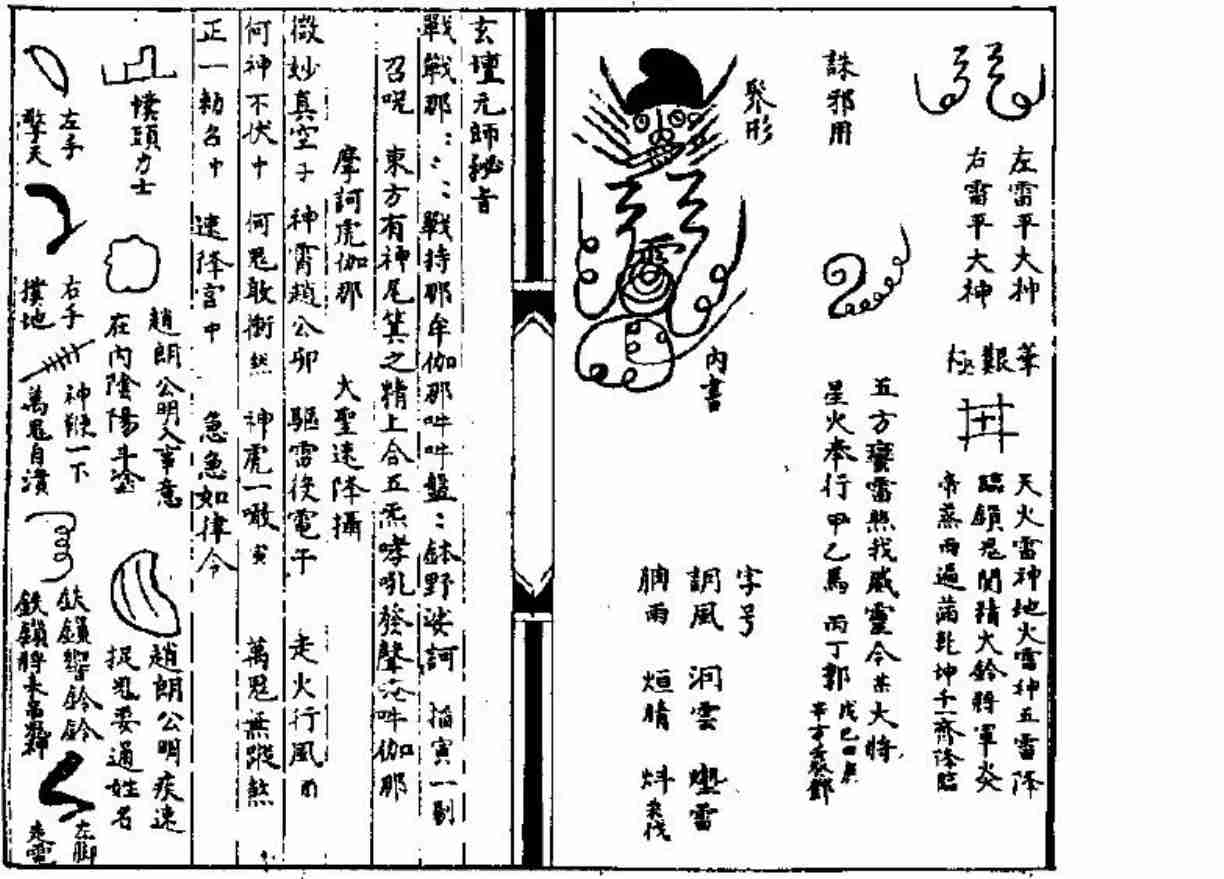 左雷平大神
右雷平大神
天火雷神地火雷神五雷降
臨鎖鬼關精大鈴將軍炎
帝蒸雨遍滿乾坤千一齊降臨
誅邪用
五方蠻雷熬我威靈令某大將
星火奉行甲乙馬 丙丁郭
聚形
內書
字号
調風 洞雲 雷
雨 烜晴
玄壇元帥秘旨
戰戰那
戰持那牟伽那吽吽盤
鉢野娑訶 掐寅一剔
召呪 東方有神尾箕之精上合五炁哮吼發聲 吽伽那
摩訶虎伽那 大聖速降攝
微妙真空子 神霄趙公卯 驅雷役電午 走火行風酉
何神不伏中 何鬼敢衝 神虎一噉寅 萬鬼無蹤
正一勅召中 速降宮中 急急如律令
幞頭力士
趙朗公明入事意
在內陰陽斗塗
趙朗公明疾速
捉鬼要通姓名
左手
擎天
右手
撲地
神鞭一下
萬鬼自潰
鉄鎖響鈴鈴
鉄鎖將來
左脚
走電